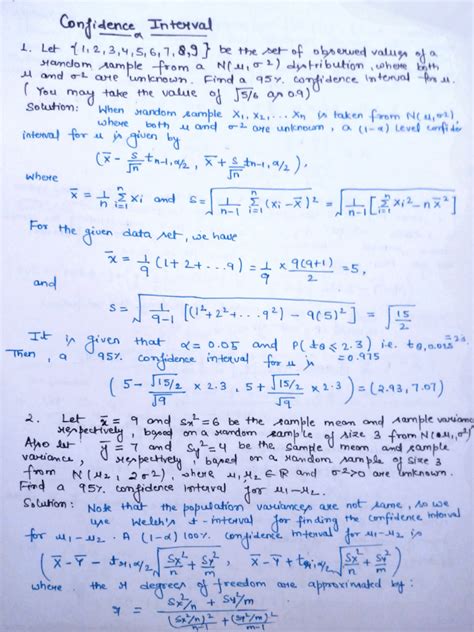 Confidence Interval
1. Let {1,2,3,4,5,6,7,8,9} be the set of observed values of a
random sample from a N(μ,σ²) distribution, where both
μ and σ² are unknown. Find a 95% confidence interval for μ.
( You may take the value of √5/6 as 0.9)
Solution: When random sample X₁, X₂,... Xn is taken from N(μ,σ²)
where both μ and σ² are unknown, a (1-α) level
interval for μ is given by
(x̄ - s/√n tn-1,α/2 , x̄ + s/√n tn-1,α/2),
where
x̄ = 1/n Σⁿᵢ₌₁ xi and s = √(1/(n-1) Σⁿᵢ₌₁ (xi - x̄)²) = √(1/(n-1) [Σⁿᵢ₌₁ xi² - n x̄²])
For the given data set, we have
x̄ = 1/9 (1+2+...9) = 1/9 × 9(9+1)/2 = 5,
and
s = √(1/(9-1) [(1²+2²+...9²) - 9(5)²]) = √(15/2)
It is given that α = 0.05 and P(t8 ≤ 2.3) i.e. t8,0.025 = 2.3
= 0.975
Then, a 95% confidence interval for μ is
(5 - √15/2/√9 × 2.3, 5 + √15/2/√9 × 2.3) = (2.93, 7.07)
2. Let x̄ = 9 and Sx² = 6 be the sample mean and sample variance
respectively, based on a random sample of size 3 from N(μ₁,σ²)
Also let ȳ = 7 and Sy² = 4 be the sample mean and sample
variance, respectively, based on a random sample of size 3
from N(μ₂, 2σ²), where μ₁,μ₂ ∈ R and σ²>0 are unknown.
Find a 95% confidence interval for μ₁-μ₂
Solution: Note that the population variances are not same, so we
use Welch's t-interval for finding the confidence interval
for μ₁-μ₂. A (1-α) 100% confidence interval for μ₁-μ₂ is
(X̄ - Ȳ - tr,α/2 √(Sx²/n + Sy²/m), X̄ - Ȳ + tr,α/2 √(Sx²/n + Sy²/m))
where the r degrees of freedom are approximated by:
r = (Sx²/n + Sy²/m) / ((Sx²/n)²/(n-1) + (Sy²/m)²/(m-1))